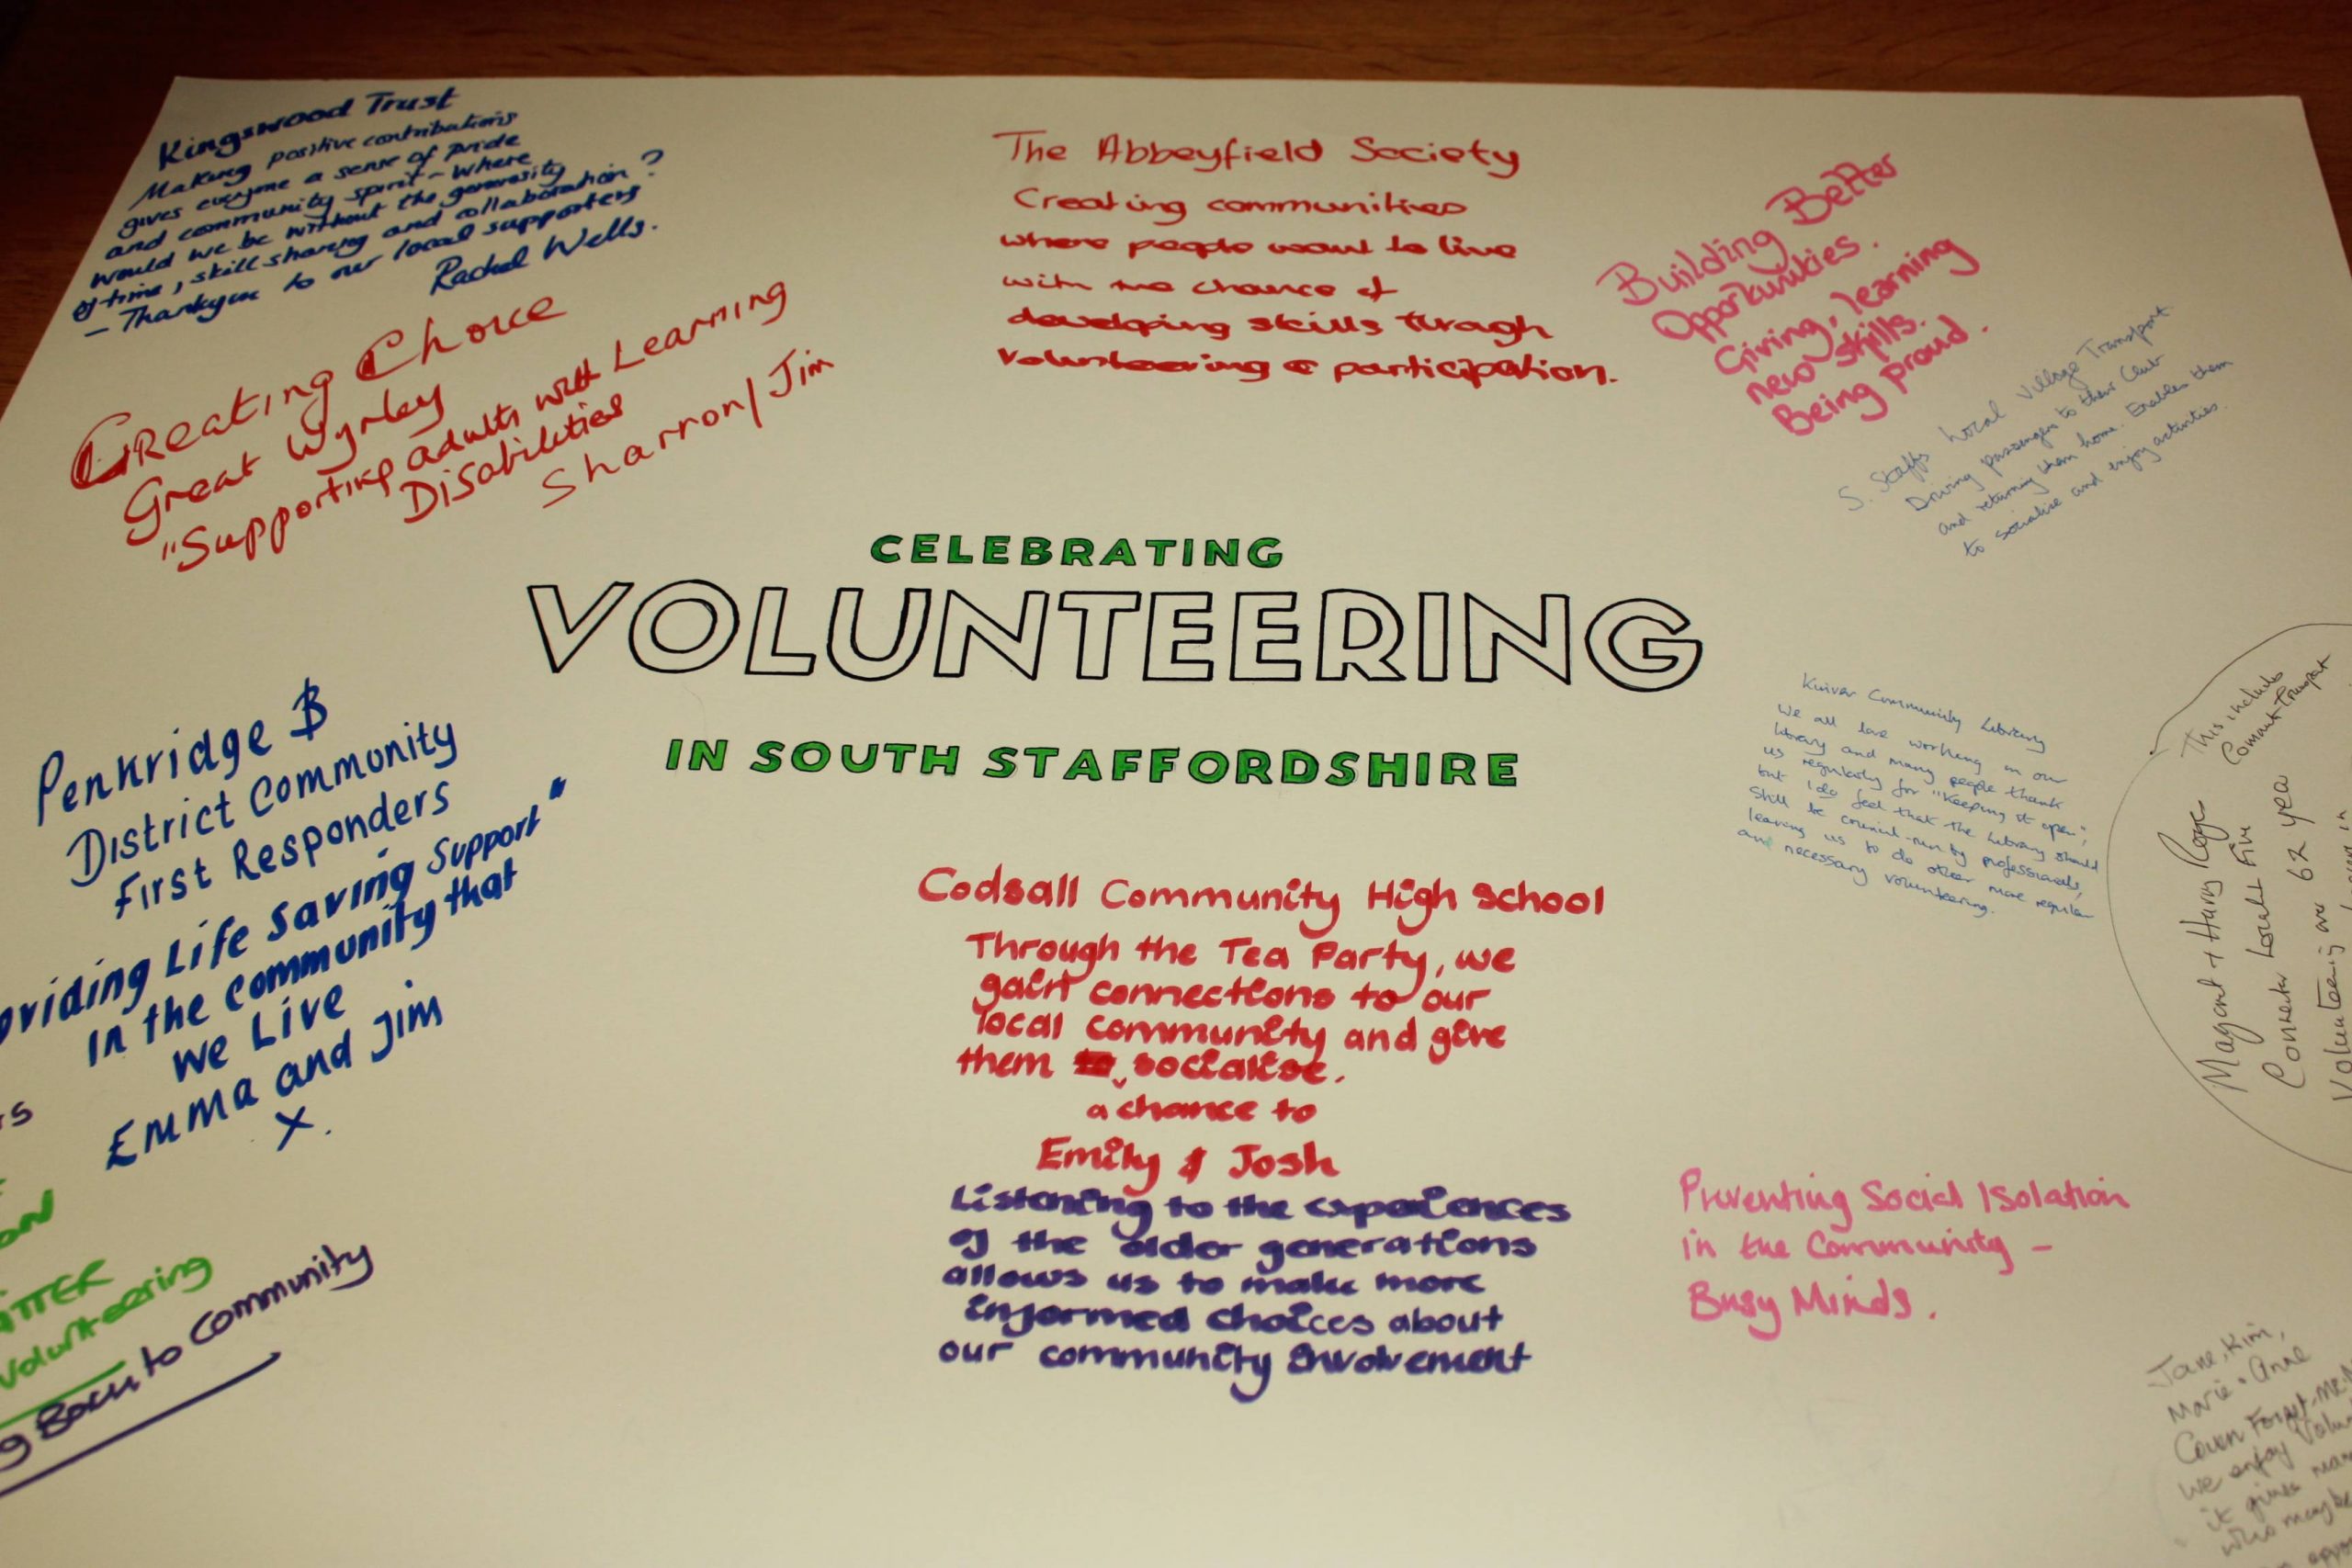 Kingswood Trust
Making positive contributions
gives everyone a sense of pride
and community spirit - Where
would we be without the generosity
of time, skill sharing and collaboration?
- Thankyou to our local supporters
Rachel Wells.
Creating Choice
Great Wyrley
"Supporting adults with Learning
Disabilities
Sharron/Jim
The Abbeyfield Society
Creating communities
where people want to live
with the chance of
developing skills through
volunteering & participation.
Building Better
Opportunities.
Giving, learning
new skills.
Being proud.
S. Staffs Local Village Transport
Driving passengers to their Club
and returning them home. Enables them
to socialise and enjoy activities.
CELEBRATING
VOLUNTEERING
IN SOUTH STAFFORDSHIRE
Penkridge &
District Community
First Responders
oviding Life Saving Support"
In the community that
we Live
Emma and Jim
x.
Kinver Community Library
We all love working in our
library and many people thank
us regularly for "Keeping it open";
but I do feel that the Library should
still be council-run by professionals,
leaving us to do other more regular
and necessary volunteering.
This includes
Comunt Transport
Margaret + Harry
62 year
Volunteering over
Codsall Community High School
Through the Tea Party, we
gain connections to our
local community and give
them socialise.
a chance to
Emily & Josh
Listening to the experiences
of the older generations
allows us to make more
informed choices about
our community involvement
Preventing Social Isolation
in the Community -
Busy Minds.
rs
ON
ATTER
Volunteering
g Back to Community
Jane, Kim,
Marie + Anne
Coven Forget-me-
we enjoy Volu
it gives
who may be